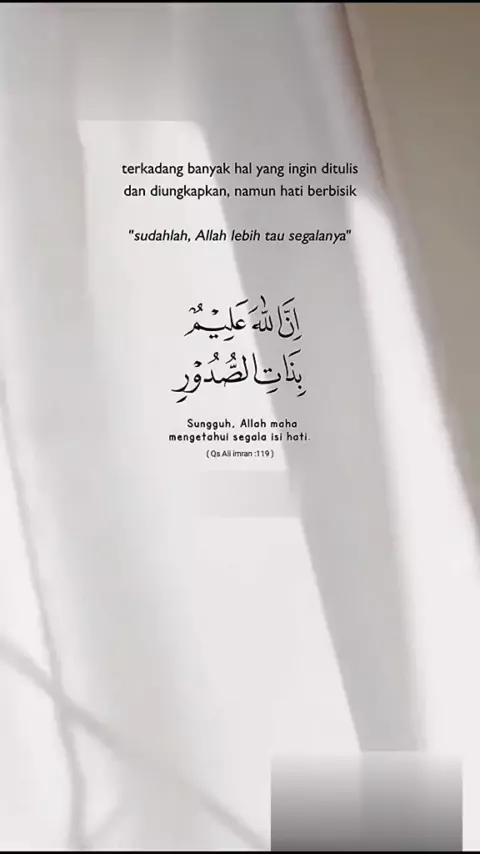 terkadang banyak hal yang ingin ditulis
dan diungkapkan, namun hati berbisik
"sudahlah, Allah lebih tau segalanya"
اِنَّ اللّٰهَ عَلِيْمٌۢ
بِذَاتِ الصُّدُوْرِ
Sungguh, Allah maha
mengetahui segala isi hati.
( Qs Ali imran :119 )